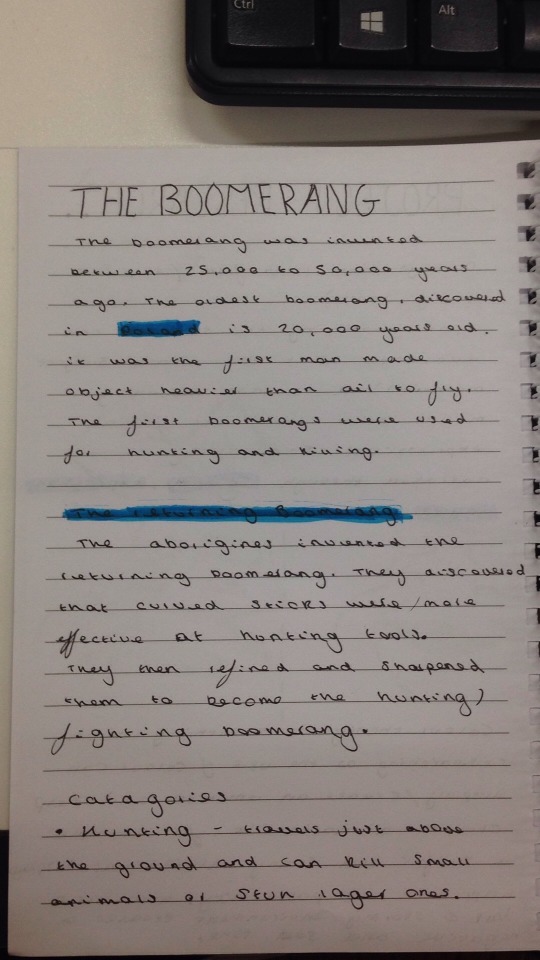 Ctrl
Alt
THE BOOMERANG
The boomerang was invented
between 25,000 to 50,000 years
ago. The oldest boomerang, discovered
in Poland is 20,000 years old.
it was the first man made
object heavier than air to fly.
The first boomerangs were used
for hunting and killing.
The returning Boomerang
The aborigines invented the
returning boomerang. They discovered
that curved sticks were/more
effective at hunting tools.
They then refined and sharpened
them to become the hunting/
fighting boomerang.
Catagories
• Hunting - travels just above
the ground and can kill small
animals or stun lager ones.